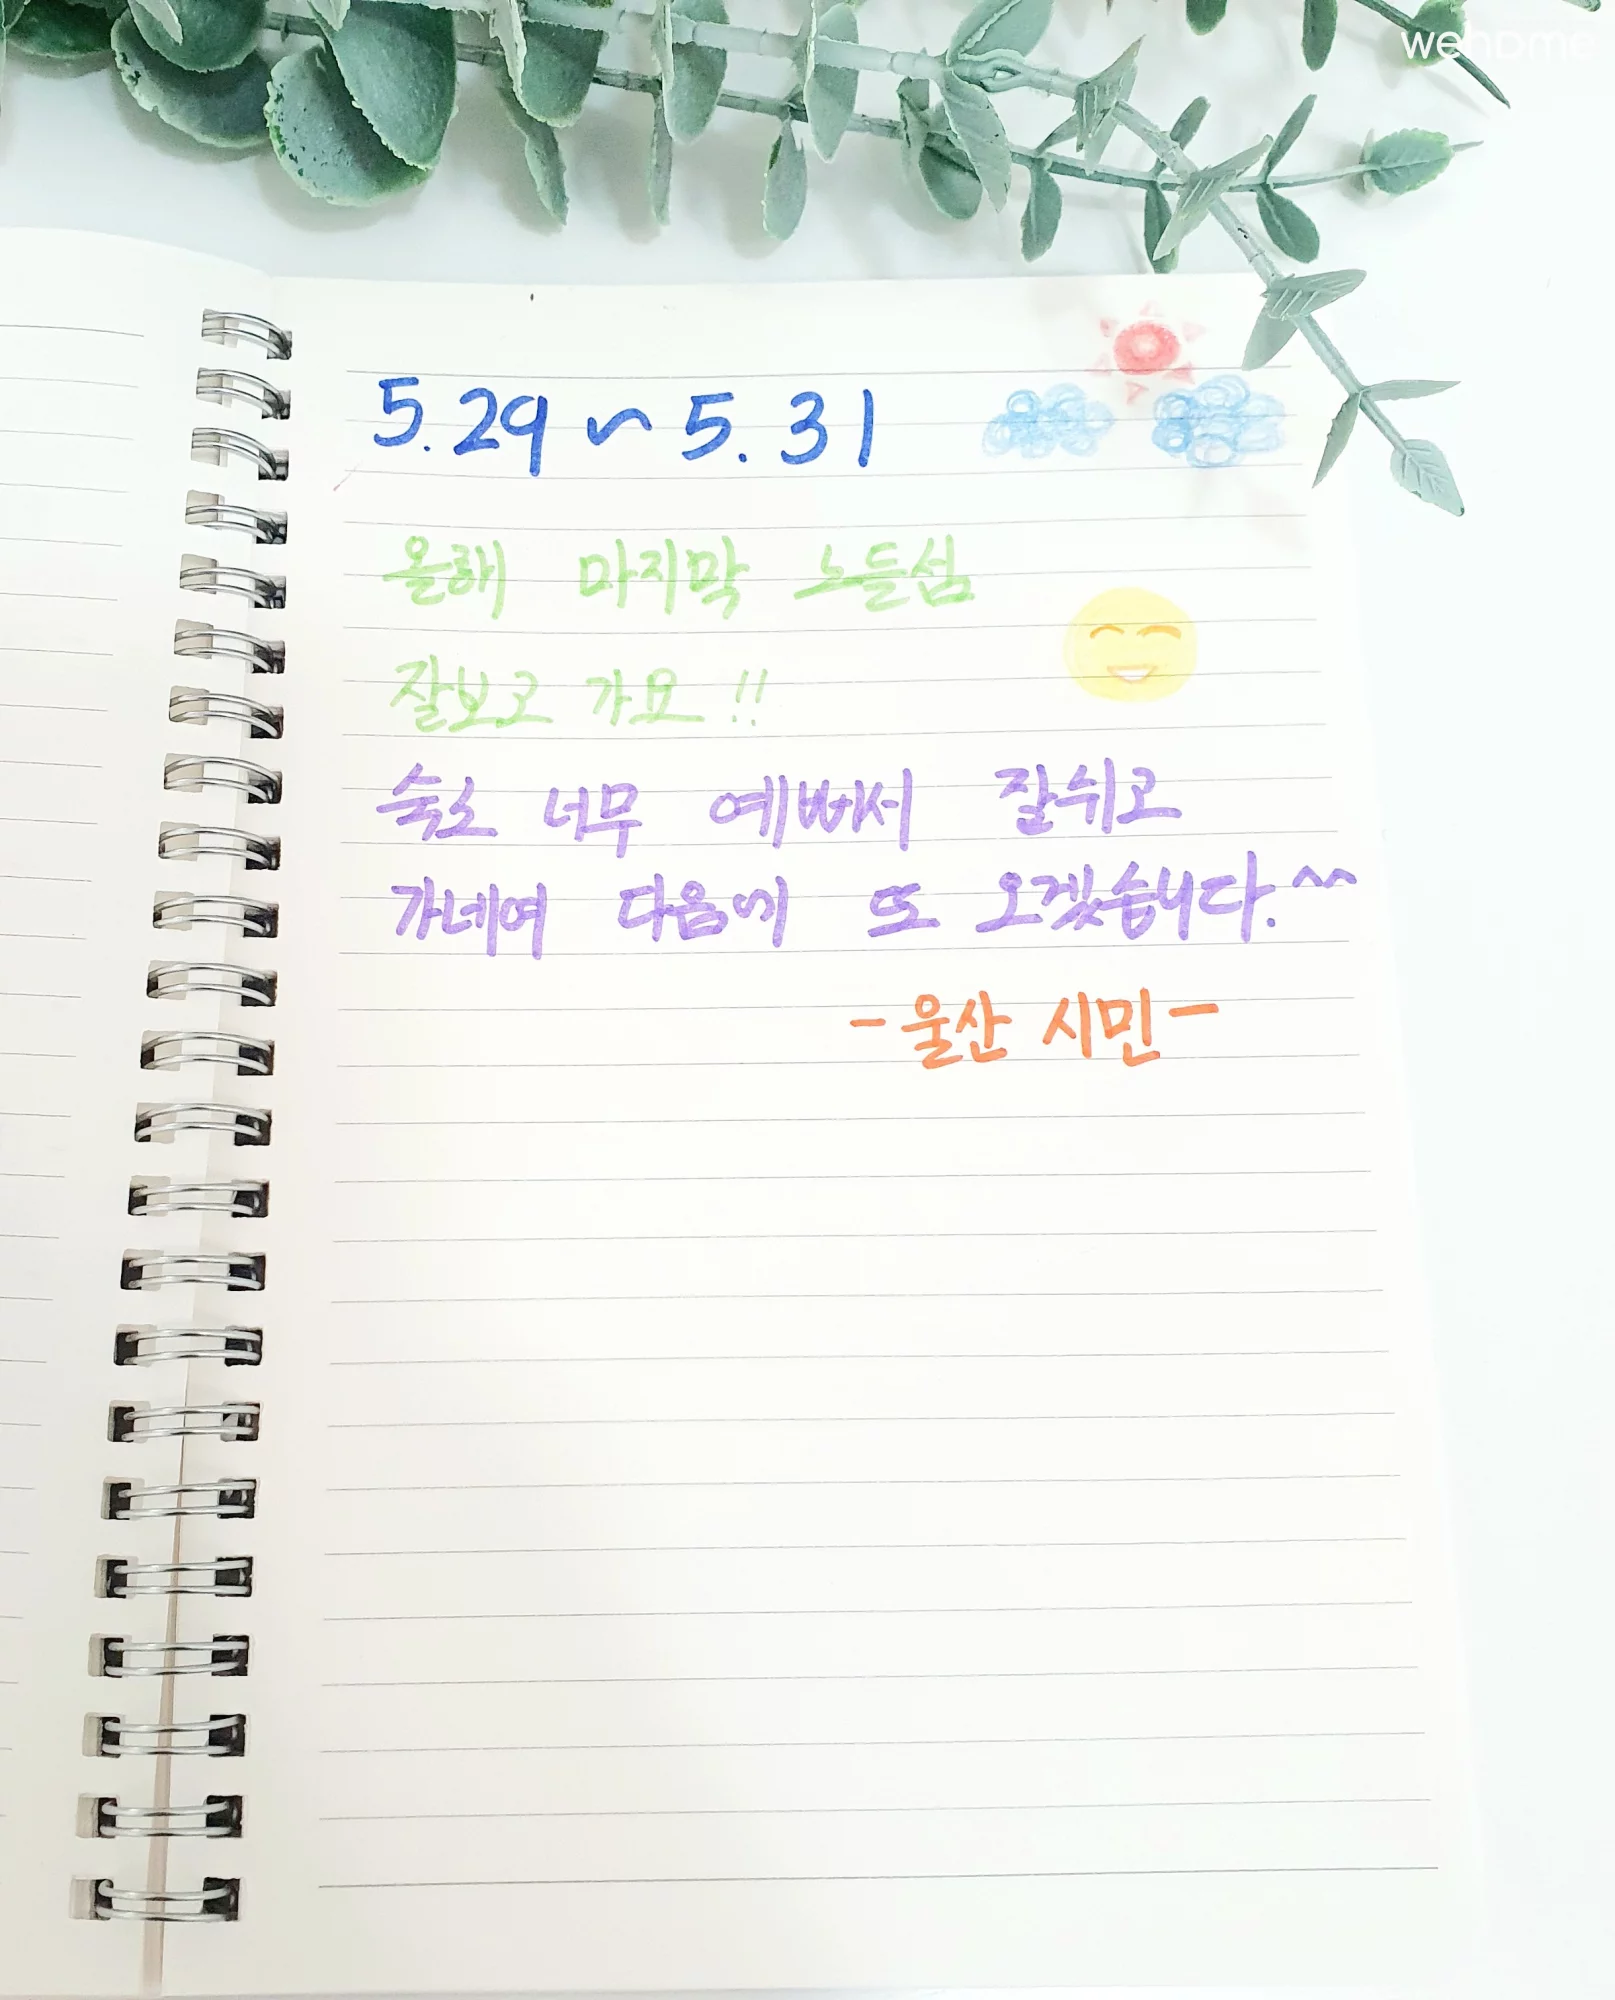 wehome
5.29 ~ 5.31
올해 마지막 노들섬
잘보고 가요!!
숙소 너무 예뻐서 잘쉬고
가네여 다음에 또 오겠습니다.^^
-울산 시민-